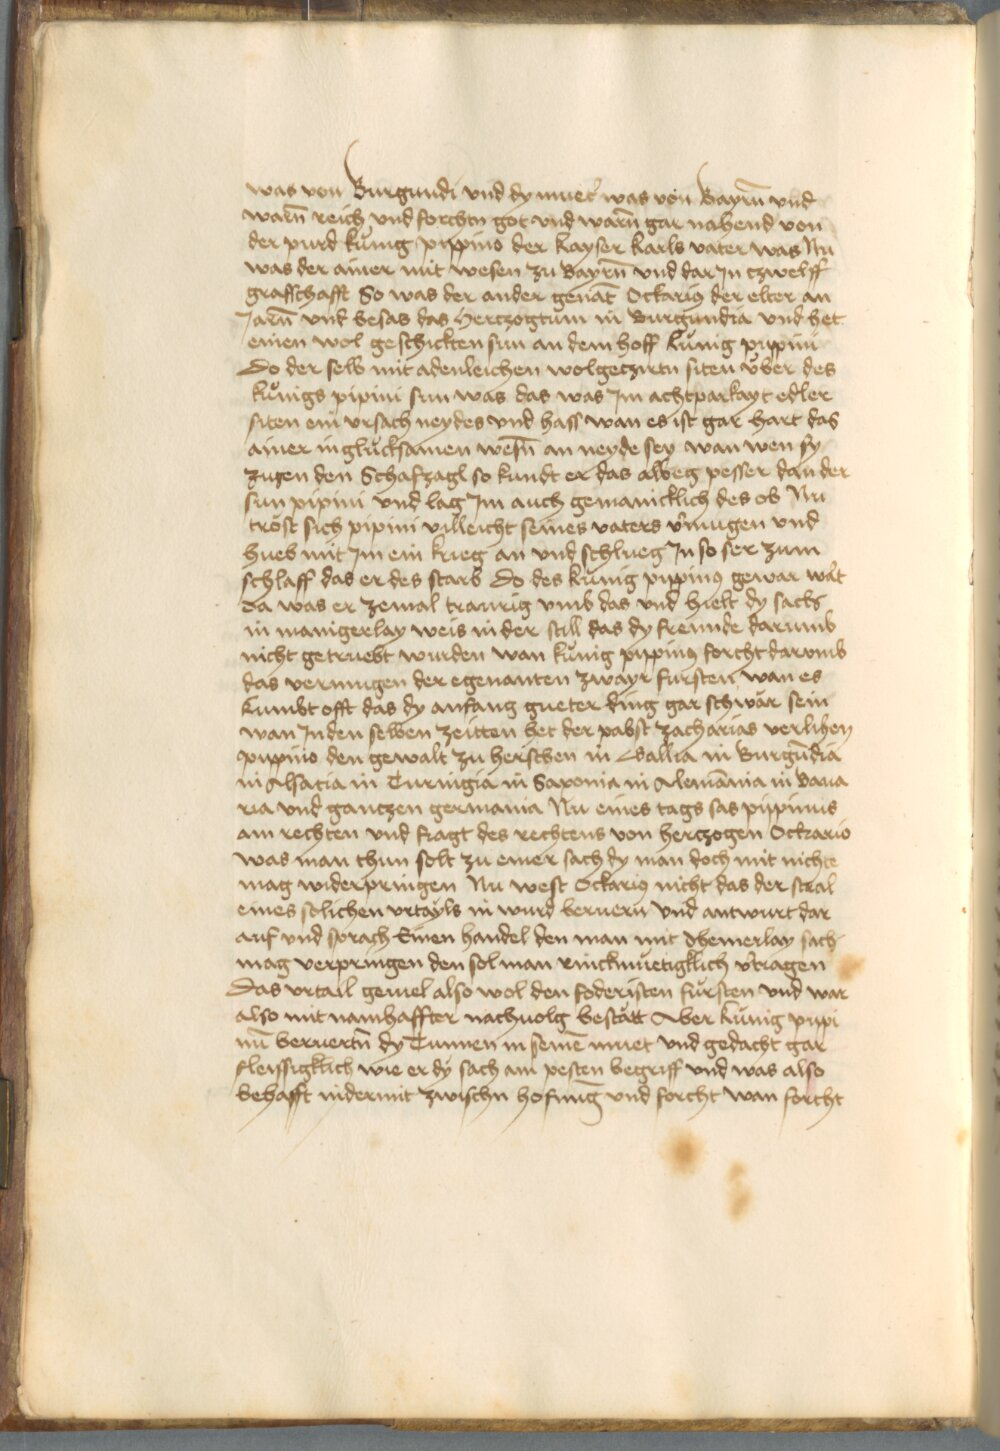 was von Burgundi vnd dy mueter was von Bayrn̄ vnd
warn̄ reich vnd forchtn got vnd warn̄ gar nahend von
der purd kůnig pippino der kayser karls vater was Nu
was der ainer mit wesen zu Bayrn̄ vnd dar Jn czwelff
graffschafft So was der ander genāt Ockariꝰ der elter an
Jarn̄ vnd besas das Herczogtum in Burgundia vnd het
einen wol geschickten sun an dem hoff kůnig pippini
Do der selb mit adenleichen wolgeczirtn siten ůber des
kůnigs pipini sun was das was Jm achtparkayt edler
siten ein vrsach neydes vnd hass wan es ist gar hart das
ainer in glůcksamen wesn̄ an neyde sey wan wen sy
zugen den Schafzagl so kundt er das albeg pesser dan der
sun pipini vnd lag Jm auch gemanicklich des ob Nu
tröst sich pipini villeicht seines vaters v̓mugen vnd
hueb mit Jm ein krieg an vnd schlueg Jn so ser zum
schlaff das er des starb Do des kůnig pippinꝰ gewar wart
da was er zemal traurig vmb das vnd hielt dy sach
in manigerlay weis in der still das dy freunde darumb
nicht getruebt wurden wan kůnig pippinꝰ forcht darvmb
das vermugen der egenanten zwayr fursten wan es
kumbt offt das dy anfang gueter ding gar schwär sein
wan Jn den selben zeitten het der pabst zacharias verlihen
pippino den gewalt zu herschen in Gallia in Burgūdia
in Alsacia in Turingia in Saxonia in Alemānia in Baua
ria vnd gantzen germania Nu eines tags sas pippinus
am rechten vnd fragt des rechtens von herczogen Ockrario
was man thun solt zu einer sach dy man doch mit nichte
mag widerpringen Nu west Ockariꝰ nicht das der stral
eines solichen vrtayls in wurd berueru vnd antwurt dar
auf vnd sprach Einen handel den man mit dhemerlay sach
mag verpringen den sol man rinckmuetigklich v̓tragen
Das vrtail geuiel also wol den foderisten fůrsten vnd war
also mit namhaffter nachuolg bestätt Aber kůnig pippi
nū beruertn̄ dy Tunnen in seinē muet vnd gedacht gar
fleissigklich wie er dy sach am pesten begriff vnd was also
behafft in dermit zwischn hofnūg vnd forcht wan forcht